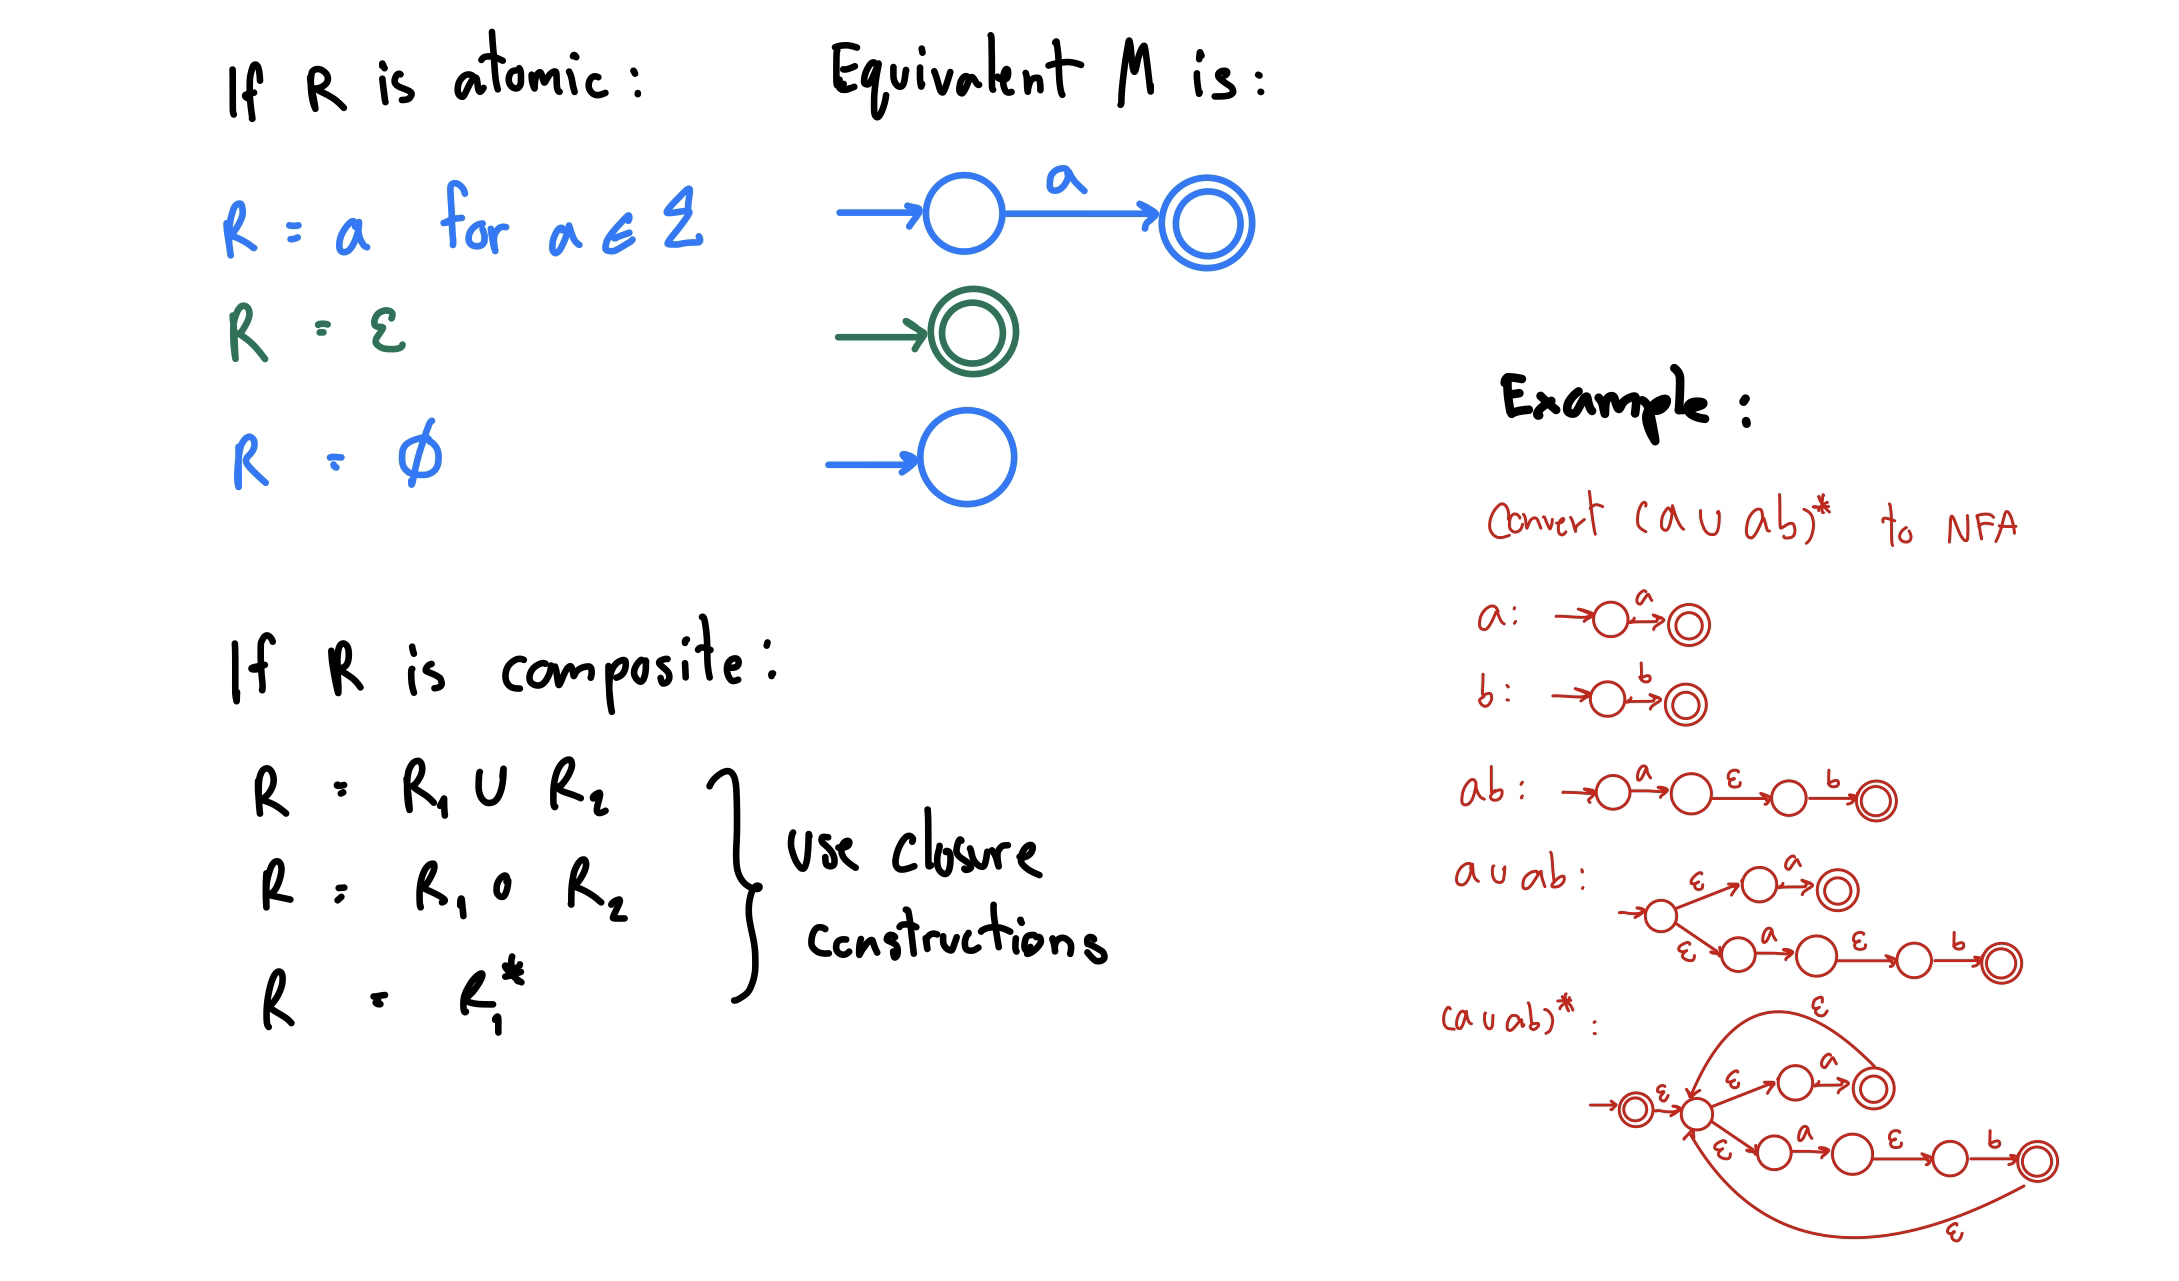 If R is atomic:
Equivalent M is:
R = a for a ∈ Σ
a
R = ε
R = ∅
If R is composite:
R = R₁ ∪ R₂
R = R₁ ∘ R₂
R = R₁*
use closure
constructions
Example:
Convert (a ∪ ab)* to NFA
a: a
b: b
ab: a ε b
a ∪ ab: ε a
ε a ε b
(a ∪ ab)*: ε
ε ε a
ε a ε b
ε